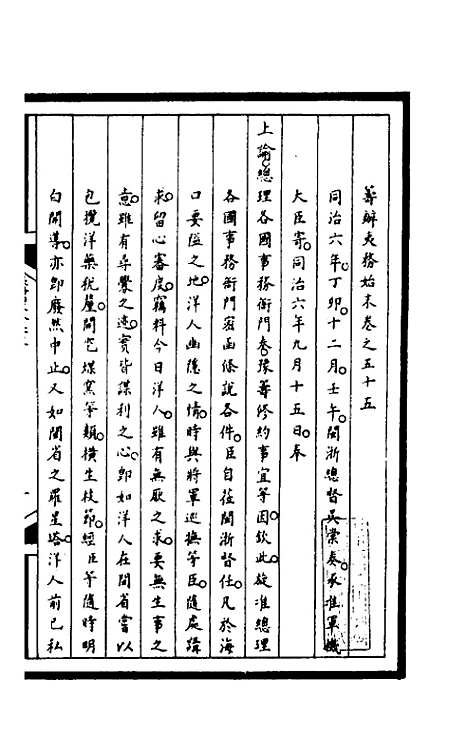 籌辦夷務始末卷之五十五
同治六年丁卯十二月壬午閩浙總督吳棠奏承准軍機
大臣寄同治六年九月十五日奉
上諭總理各國事務衙門奏豫籌修約事宜等因欽此旋准總理
各國事務衙門密函條說各件臣自蒞閩浙督任凡於海
口要隘之地洋人幽隱之情時與將軍巡撫等臣隨處講
求留心審度竊料今日洋人雖有無厭之求要無生事之
意雖有尋釁之迹實皆謀利之心即如洋人在閩省嘗以
包攬洋藥稅釐開挖煤窯等類橫生枝節經臣等隨時明
白開導亦即廢然中止又如閩省之羅星塔洋人前已私